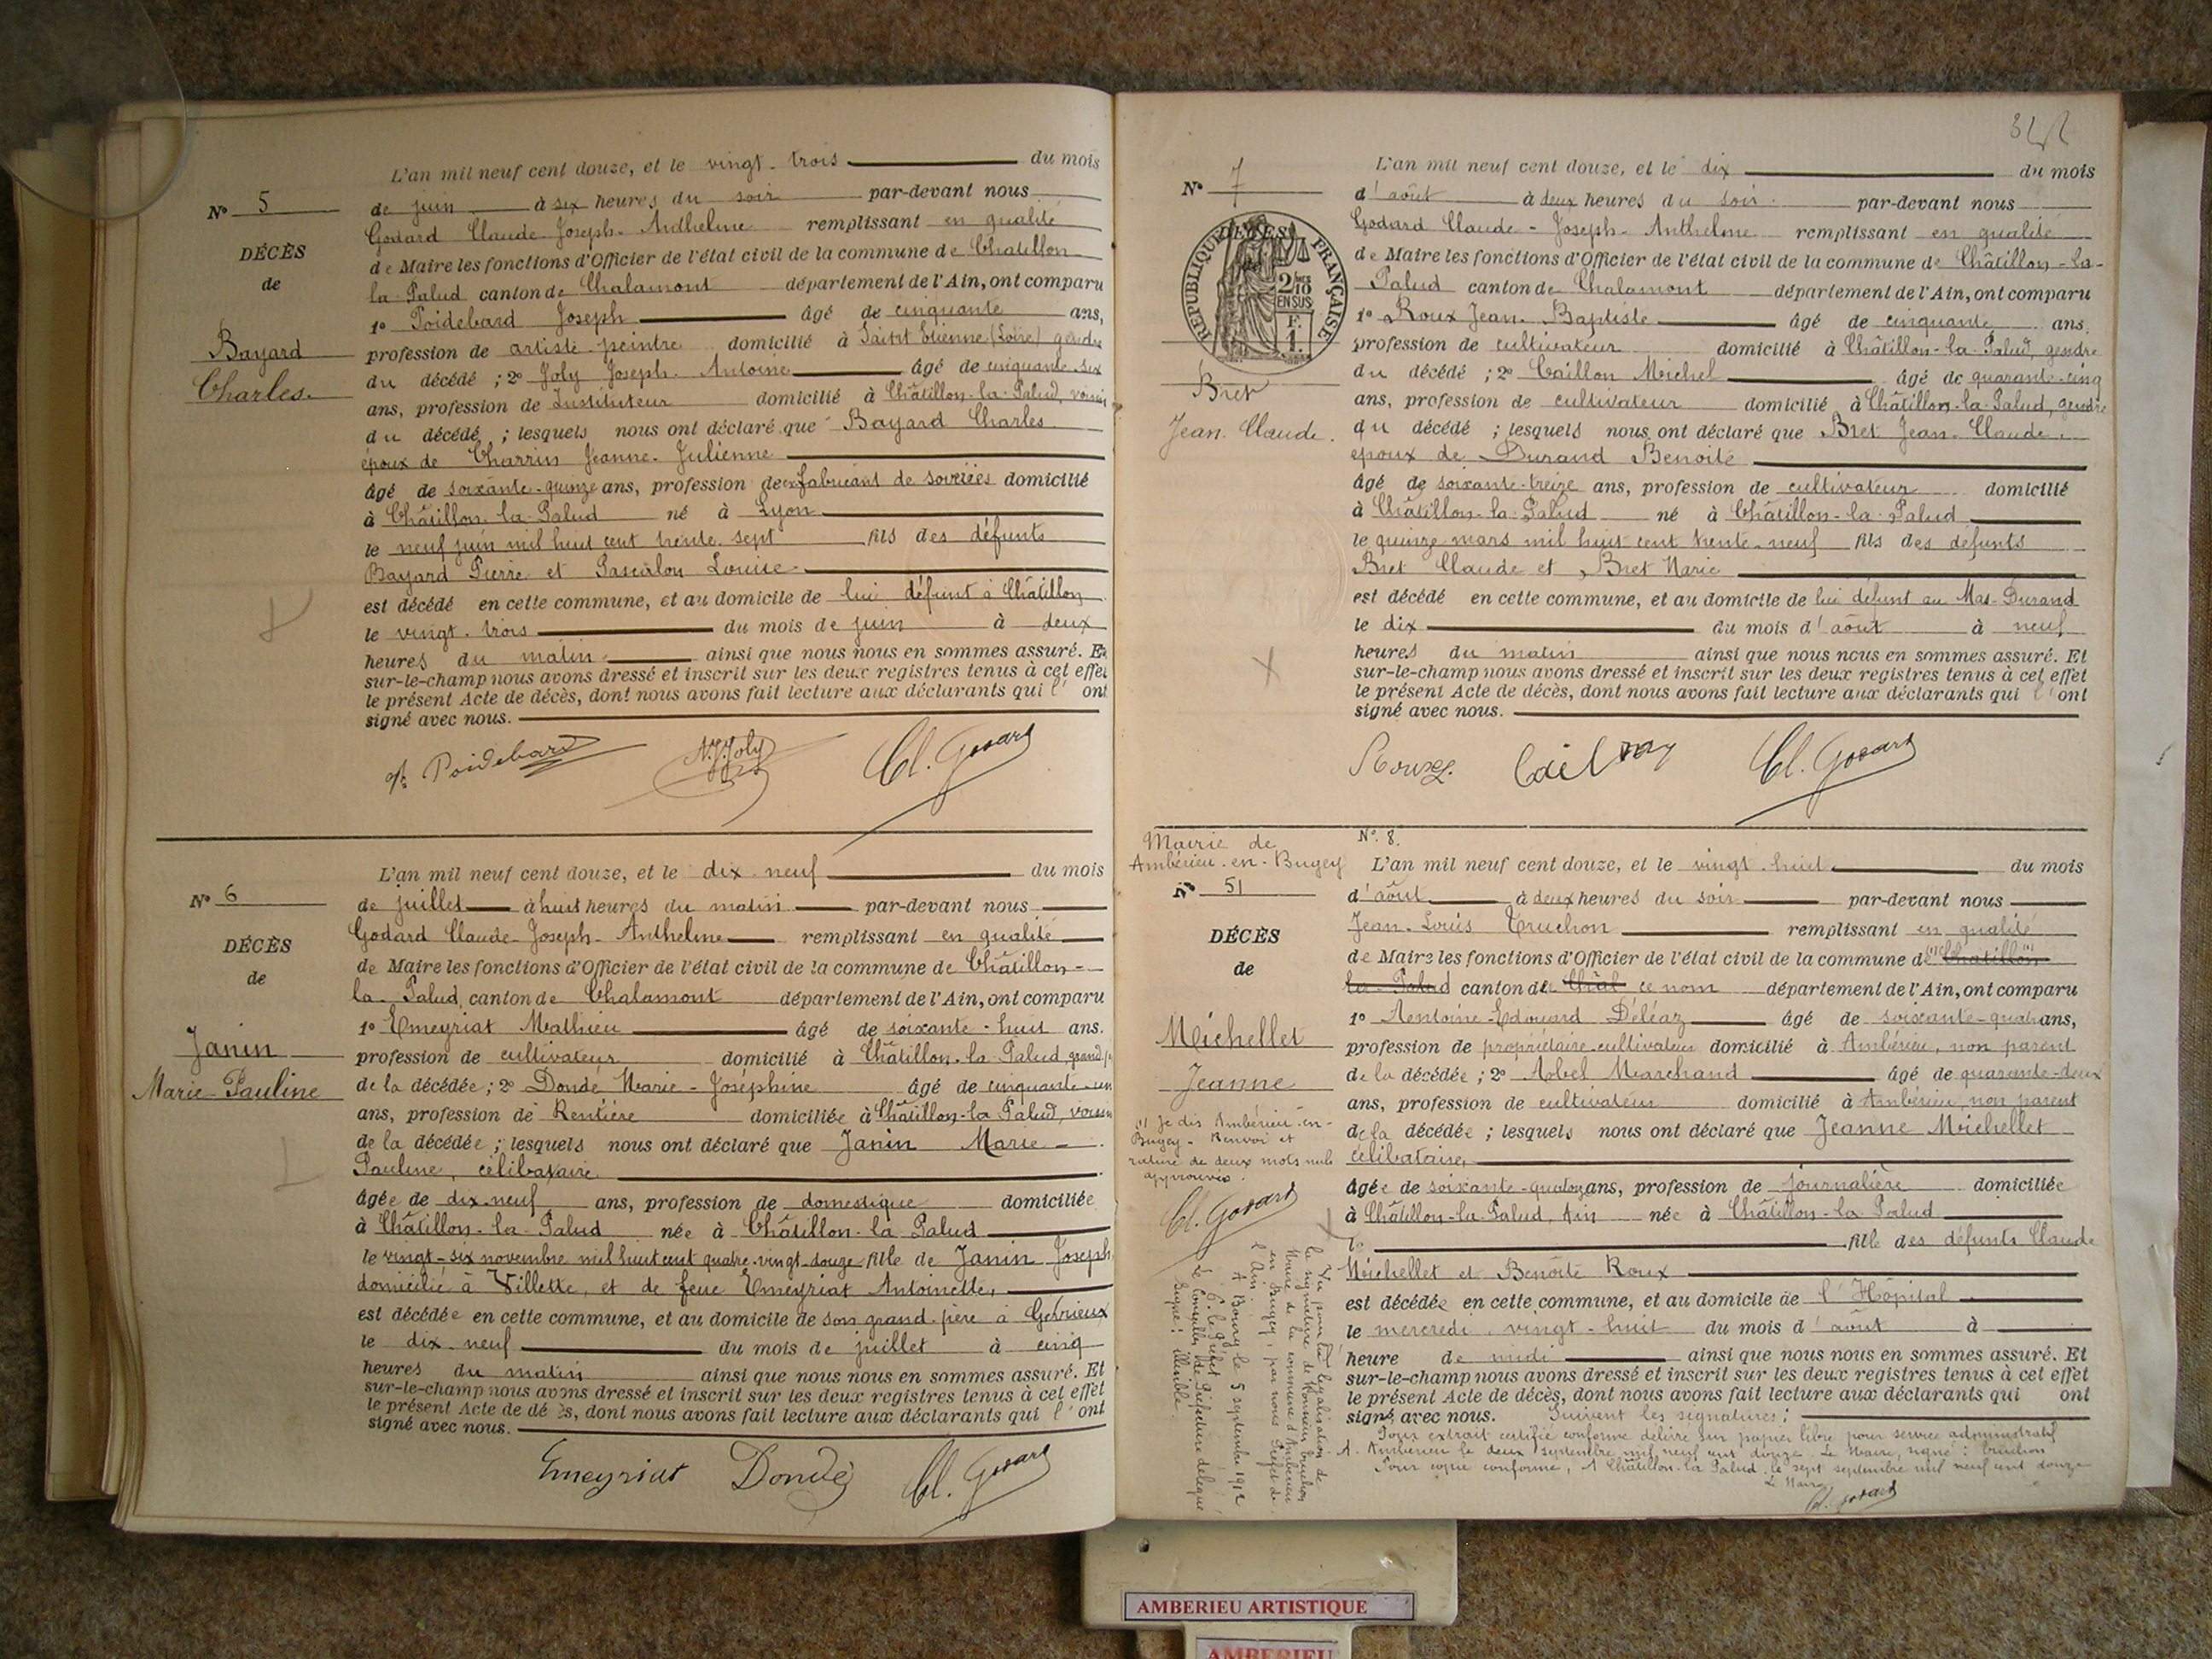 L'an mil neuf cent douze, et le vingt-trois du mois
N° 5
de juin à six heures du soir par-devant nous
Godard Claude-Joseph-Anthelme remplissant en qualité
DÉCÈS
de Maire les fonctions d'Officier de l'état civil de la commune de Châtillon
de
la-Palud canton de Chalamont département de l'Ain, ont comparu
1° Poidebard Joseph âgé de cinquante ans,
Bayard
profession de artiste-peintre domicilié à Saint Etienne (Loire) gendre
Charles.
du décédé ; 2° Joly Joseph-Antoine âgé de cinquante-six
ans, profession de Instituteur domicilié à Châtillon-la-Palud, voisin
du décédé ; lesquels nous ont déclaré que Bayard Charles
époux de Charrin Jeanne-Julienne
âgé de soixante-quinze ans, profession de fabricant de soieries domicilié
à Châtillon-la-Palud né à Lyon
le neuf juin mil huit cent trente-sept fils des défunts
Bayard Pierre et Pascalon Louise
est décédé en cette commune, et au domicile de lui défunt à Châtillon
le vingt-trois du mois de juin à deux
heures du matin ainsi que nous nous en sommes assuré. Et
sur-le-champ nous avons dressé et inscrit sur les deux registres tenus à cet effet
le présent Acte de décès, dont nous avons fait lecture aux déclarants qui l'ont
signé avec nous.
Poidebard Joly Cl. Godard
L'an mil neuf cent douze, et le dix-neuf du mois
N° 6
de juillet à huit heures du matin par-devant nous
Godard Claude-Joseph-Anthelme remplissant en qualité
DÉCÈS
de Maire les fonctions d'Officier de l'état civil de la commune de Châtillon-
de
la-Palud canton de Chalamont département de l'Ain, ont comparu
1° Emeyriat Mathieu âgé de soixante-huit ans.
Janin
profession de cultivateur domicilié à Châtillon-la-Palud, grand-p
Marie-Pauline
de la décédée ; 2° Dondé Marie-Joséphine âgé de cinquante-un
ans, profession de Rentière domiciliée à Châtillon-la-Palud, voisin
de la décédée ; lesquels nous ont déclaré que Janin Marie-
Pauline, célibataire
âgée de dix-neuf ans, profession de domestique domiciliée
à Châtillon-la-Palud née à Châtillon-la-Palud
le vingt-six novembre mil huit cent quatre-vingt-douze fille de Janin Joseph
domicilié à Villette, et de feue Emeyriat Antoinette,
est décédée en cette commune, et au domicile de son grand-père à Gévrieux
le dix-neuf du mois de juillet à cinq
heures du matin ainsi que nous nous en sommes assuré. Et
sur-le-champ nous avons dressé et inscrit sur les deux registres tenus à cet effet
le présent Acte de décès, dont nous avons fait lecture aux déclarants qui l'ont
signé avec nous.
Emeyriat Dondé Cl. Godard
L'an mil neuf cent douze, et le dix du mois
N° 7
d'août à deux heures du soir par-devant nous
Godard Claude-Joseph-Anthelme remplissant en qualité
RÉPUBLIQUE FRANÇAISE
2/10 EN SUS
F. 1.
de Maire les fonctions d'Officier de l'état civil de la commune de Châtillon-la-
Palud canton de Chalamont département de l'Ain, ont comparu
1° Roux Jean-Baptiste âgé de cinquante ans.
profession de cultivateur domicilié à Châtillon-la-Palud, gendre
Bret
du décédé ; 2° Caillon Michel âgé de quarante-cinq
ans, profession de cultivateur domicilié à Châtillon-la-Palud, gendre
Jean-Claude.
du décédé ; lesquels nous ont déclaré que Bret Jean-Claude,
époux de Durand Benoîte
âgé de soixante-treize ans, profession de cultivateur domicilié
à Châtillon-la-Palud né à Châtillon-la-Palud
le quinze mars mil huit cent trente-neuf fils des défunts
Bret Claude et Bret Marie
est décédé en cette commune, et au domicile de lui défunt au Mas-Durand
le dix du mois d'août à neuf
heures du matin ainsi que nous nous en sommes assuré. Et
sur-le-champ nous avons dressé et inscrit sur les deux registres tenus à cet effet
le présent Acte de décès, dont nous avons fait lecture aux déclarants qui l'ont
signé avec nous.
Roux Cl. Godard
Mairie de
Ambérieu-en-Bugey
N° 8.
L'an mil neuf cent douze, et le vingt-huit du mois
N° 51
d'août à deux heures du soir par-devant nous
Jean-Louis Truchon remplissant en qualité
DÉCÈS
de Maire les fonctions d'Officier de l'état civil de la commune de (1) Châtillon
de
la-Palud canton de Chal ce nom département de l'Ain, ont comparu
1° Antoine-Edouard Déléaz âgé de soixante-quatre ans,
Michellet
profession de propriétaire-cultivateur domicilié à Ambérieu, non parent
Jeanne
de la décédée ; 2° Abel Marchand âgé de quarante-deux
ans, profession de cultivateur domicilié à Ambérieu, non parent
de la décédée ; lesquels nous ont déclaré que Jeanne Michellet
célibataire,
âgée de soixante-quatorze ans, profession de journalière domiciliée
à Châtillon-la-Palud, Ain née à Châtillon-la-Palud
le fille des défunts Claude
Michellet et Benoîte Roux
est décédée en cette commune, et au domicile de l'Hôpital
le mercredi vingt-huit du mois d'août à
heure de midi ainsi que nous nous en sommes assuré. Et
sur-le-champ nous avons dressé et inscrit sur les deux registres tenus à cet effet
le présent Acte de décès, dont nous avons fait lecture aux déclarants qui ont
signé avec nous. Suivent les signatures :
Pour extrait certifié conforme délivré sur papier libre pour service administratif
A Ambérieu le deux septembre mil neuf cent douze. Le Maire, signé : Truchon
Pour copie conforme, A Châtillon-la-Palud, le sept septembre mil neuf cent douze
Le Maire
Cl. Godard
(1) Je dis Ambérieu-en-
Bugey - Renvoi et
rature de deux mots nuls
approuvés.
Cl. Godard
Vu pour la légalisation de
la signature de Monsieur Truchon
Maire de la commune d'Ambérieu
en Bugey, par nous Préfet de
l'Ain
A Bourg le 5 septembre 1912
P. le Préfet
Le Conseiller de Préfecture délégué
Signé : illisible.
AMBERIEU ARTISTIQUE
AMBERIEU